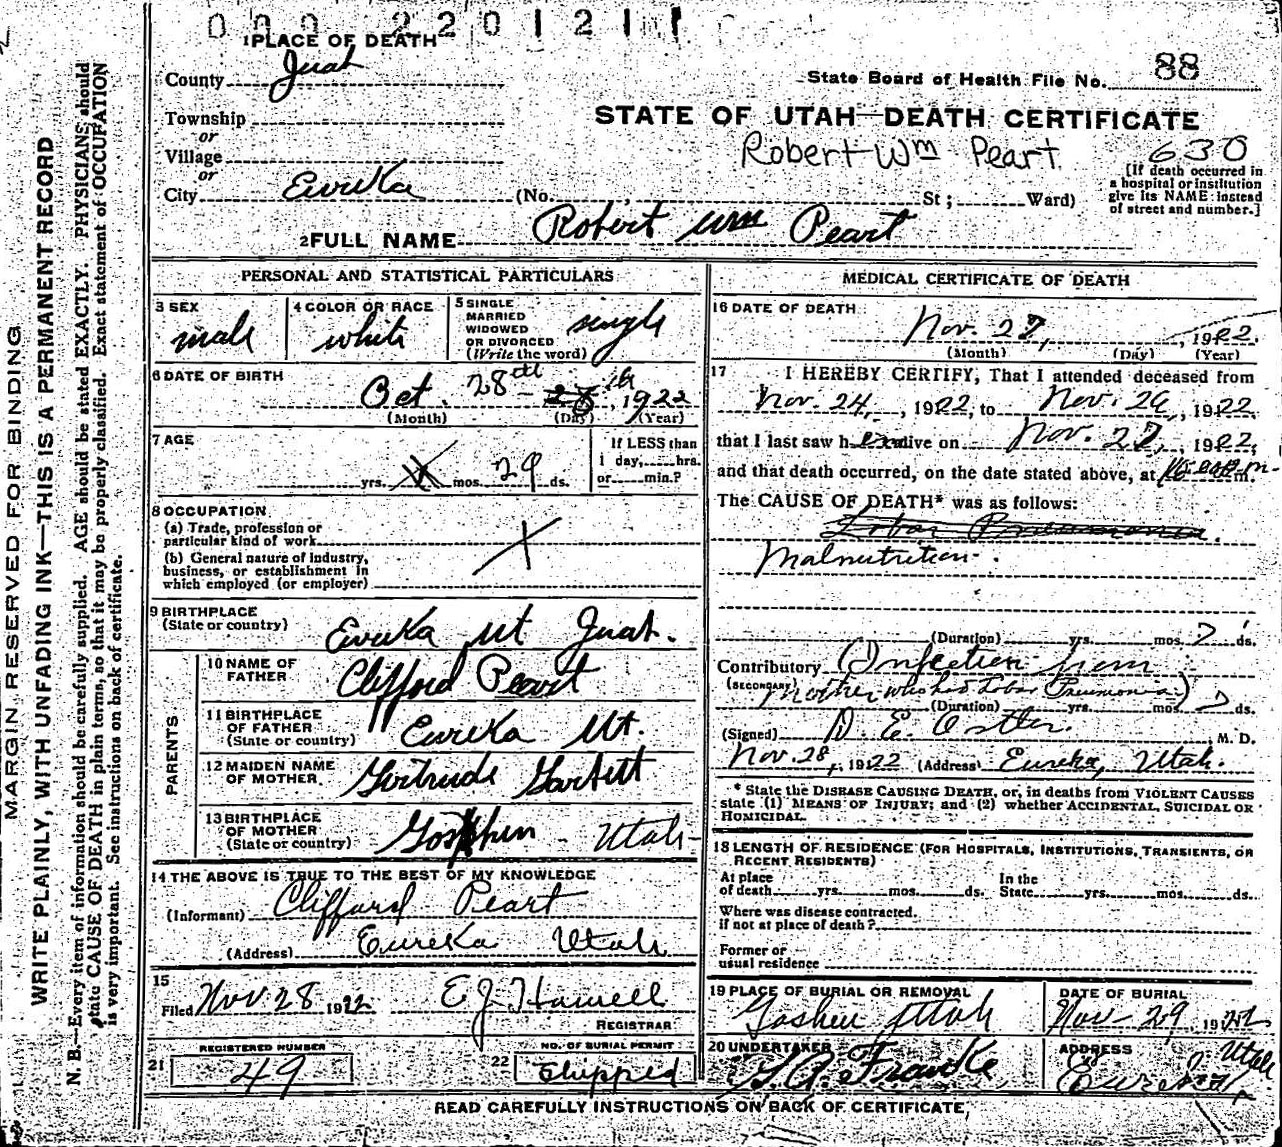 0 0 0 2 2 0 1 2 1
1 PLACE OF DEATH
County Juab
State Board of Health File No. 88
Township
or
Village
or
City Eureka
STATE OF UTAH—DEATH CERTIFICATE
Robert Wm Peart 630
(No. St; Ward)
[If death occurred in
a hospital or institution
give its NAME instead
of street and number.]
2 FULL NAME Robert Wm Peart
PERSONAL AND STATISTICAL PARTICULARS
3 SEX
male
4 COLOR OR RACE
white
5 SINGLE
MARRIED
WIDOWED
OR DIVORCED
(Write the word)
single
6 DATE OF BIRTH
Oct. 28th 1922
(Month) (Day) (Year)
7 AGE
yrs. mos. 29 ds.
If LESS than
1 day, hrs.
or min.?
8 OCCUPATION
(a) Trade, profession or
particular kind of work
(b) General nature of industry,
business, or establishment in
which employed (or employer)
9 BIRTHPLACE
(State or country)
Eureka Ut Juab.
PARENTS
10 NAME OF
FATHER
Clifford Peart
11 BIRTHPLACE
OF FATHER
(State or country)
Eureka Ut.
12 MAIDEN NAME
OF MOTHER
Gertrude Garbett
13 BIRTHPLACE
OF MOTHER
(State or country)
Goshen - Utah-
14 THE ABOVE IS TRUE TO THE BEST OF MY KNOWLEDGE
(Informant) Clifford Peart
(Address) Eureka Utah
15
Filed Nov. 28 1922
REGISTRAR
REGISTERED NUMBER
21 49
NO. OF BURIAL PERMIT
22 Shipped
MEDICAL CERTIFICATE OF DEATH
16 DATE OF DEATH
Nov. 27, 1922.
(Month) (Day) (Year)
17 I HEREBY CERTIFY, That I attended deceased from
Nov. 24, 1922, to Nov. 26, 1922,
that I last saw h alive on Nov. 27, 1922,
and that death occurred, on the date stated above, at m.
The CAUSE OF DEATH* was as follows:
Lobar Pneumonia.
Malnutrition.
(Duration) yrs. mos. 7 ds.
Contributory (Infection from
(SECONDARY) Mother who had Lobar Pneumonia)
(Duration) yrs. mos. 7 ds.
(Signed) D. E. Ostler. M. D.
Nov. 28, 1922 (Address) Eureka, Utah.
* State the DISEASE CAUSING DEATH, or, in deaths from VIOLENT CAUSES
state (1) MEANS OF INJURY; and (2) whether ACCIDENTAL, SUICIDAL OR
HOMICIDAL.
18 LENGTH OF RESIDENCE (FOR HOSPITALS, INSTITUTIONS, TRANSIENTS, OR
RECENT RESIDENTS)
At place
of death yrs. mos. ds.
In the
State yrs. mos. ds.
Where was disease contracted,
if not at place of death?
Former or
usual residence
19 PLACE OF BURIAL OR REMOVAL
Goshen Utah
DATE OF BURIAL
Nov 29 1922
20 UNDERTAKER
Franke
ADDRESS
Eureka Utah
READ CAREFULLY INSTRUCTIONS ON BACK OF CERTIFICATE,
MARGIN RESERVED FOR BINDING
WRITE PLAINLY, WITH UNFADING INK—THIS IS A PERMANENT RECORD
N. B.—Every item of information should be carefully supplied. AGE should be stated EXACTLY. PHYSICIANS should
state CAUSE OF DEATH in plain terms, so that it may be properly classified. Exact statement of OCCUPATION
is very important. See instructions on back of certificate.